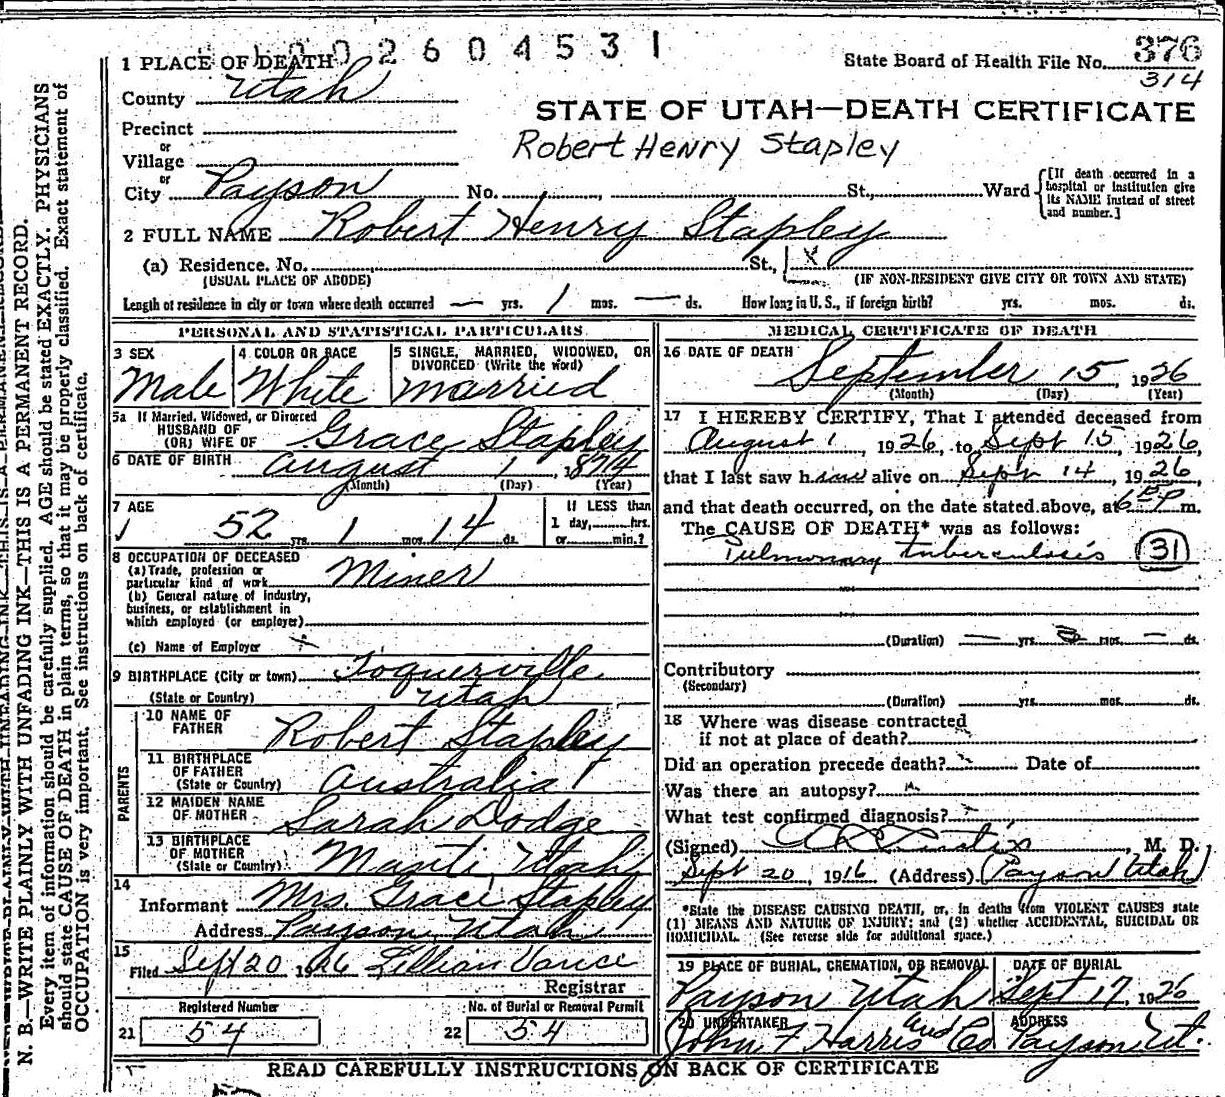 002604531
1 PLACE OF DEATH
State Board of Health File No. 376
314
County Utah
STATE OF UTAH—DEATH CERTIFICATE
Precinct
or
Robert Henry Stapley
Village
or
City Payson No. St., Ward
[If death occurred in a hospital or institution give its NAME instead of street and number.]
2 FULL NAME Robert Henry Stapley
(a) Residence. No. St., X
(USUAL PLACE OF ABODE) (IF NON-RESIDENT GIVE CITY OR TOWN AND STATE)
Length of residence in city or town where death occurred — yrs. 1 mos. — ds. How long in U. S., if foreign birth? yrs. mos. ds.
PERSONAL AND STATISTICAL PARTICULARS
3 SEX Male
4 COLOR OR RACE White
5 SINGLE, MARRIED, WIDOWED, OR DIVORCED (Write the word) married
5a If Married, Widowed, or Divorced
HUSBAND OF
(OR) WIFE OF Grace Stapley
6 DATE OF BIRTH August 1 1874
(Month) (Day) (Year)
7 AGE 52 yrs. 1 mos. 14 ds.
If LESS than
1 day, hrs.
or min.?
8 OCCUPATION OF DECEASED
(a) Trade, profession or
particular kind of work Miner
(b) General nature of industry,
business, or establishment in
which employed (or employer)
(c) Name of Employer
9 BIRTHPLACE (City or town) Toquerville
(State or Country) Utah
PARENTS
10 NAME OF
FATHER Robert Stapley
11 BIRTHPLACE
OF FATHER
(State or Country) Australia
12 MAIDEN NAME
OF MOTHER Sarah Dodge
13 BIRTHPLACE
OF MOTHER
(State or Country) Manti, Utah
14
Informant Mrs. Grace Stapley
Address Payson, Utah
15
Filed Sept 20 1926 Lillian Vance
Registrar
Registered Number
21 54
No. of Burial or Removal Permit
22 54
MEDICAL CERTIFICATE OF DEATH
16 DATE OF DEATH September 15, 1926
(Month) (Day) (Year)
17 I HEREBY CERTIFY, That I attended deceased from
August 1 1926, to Sept 15 1926,
that I last saw him alive on Sept 14, 1926
and that death occurred, on the date stated above, at 6 P m.
The CAUSE OF DEATH* was as follows:
Pulmonary tuberculosis 31
(Duration) — yrs. 3 mos. — ds.
Contributory
(Secondary)
(Duration) yrs. mos. ds.
18 Where was disease contracted
if not at place of death?
Did an operation precede death? Date of
Was there an autopsy?
What test confirmed diagnosis?
(Signed) , M. D.
Sept 20, 1916 (Address) Payson Utah
*State the DISEASE CAUSING DEATH, or, in deaths from VIOLENT CAUSES state
(1) MEANS AND NATURE OF INJURY; and (2) whether ACCIDENTAL, SUICIDAL OR
HOMICIDAL. (See reverse side for additional space.)
19 PLACE OF BURIAL, CREMATION, OR REMOVAL Payson Utah
DATE OF BURIAL Sept 17, 1926
20 UNDERTAKER John F Harris and Co
ADDRESS Payson Ut.
READ CAREFULLY INSTRUCTIONS ON BACK OF CERTIFICATE
N. B.—WRITE PLAINLY WITH UNFADING INK—THIS IS A PERMANENT RECORD.
Every item of information should be carefully supplied. AGE should be stated EXACTLY. PHYSICIANS
should state CAUSE OF DEATH in plain terms, so that it may be properly classified. Exact statement of
OCCUPATION is very important. See instructions on back of certificate.